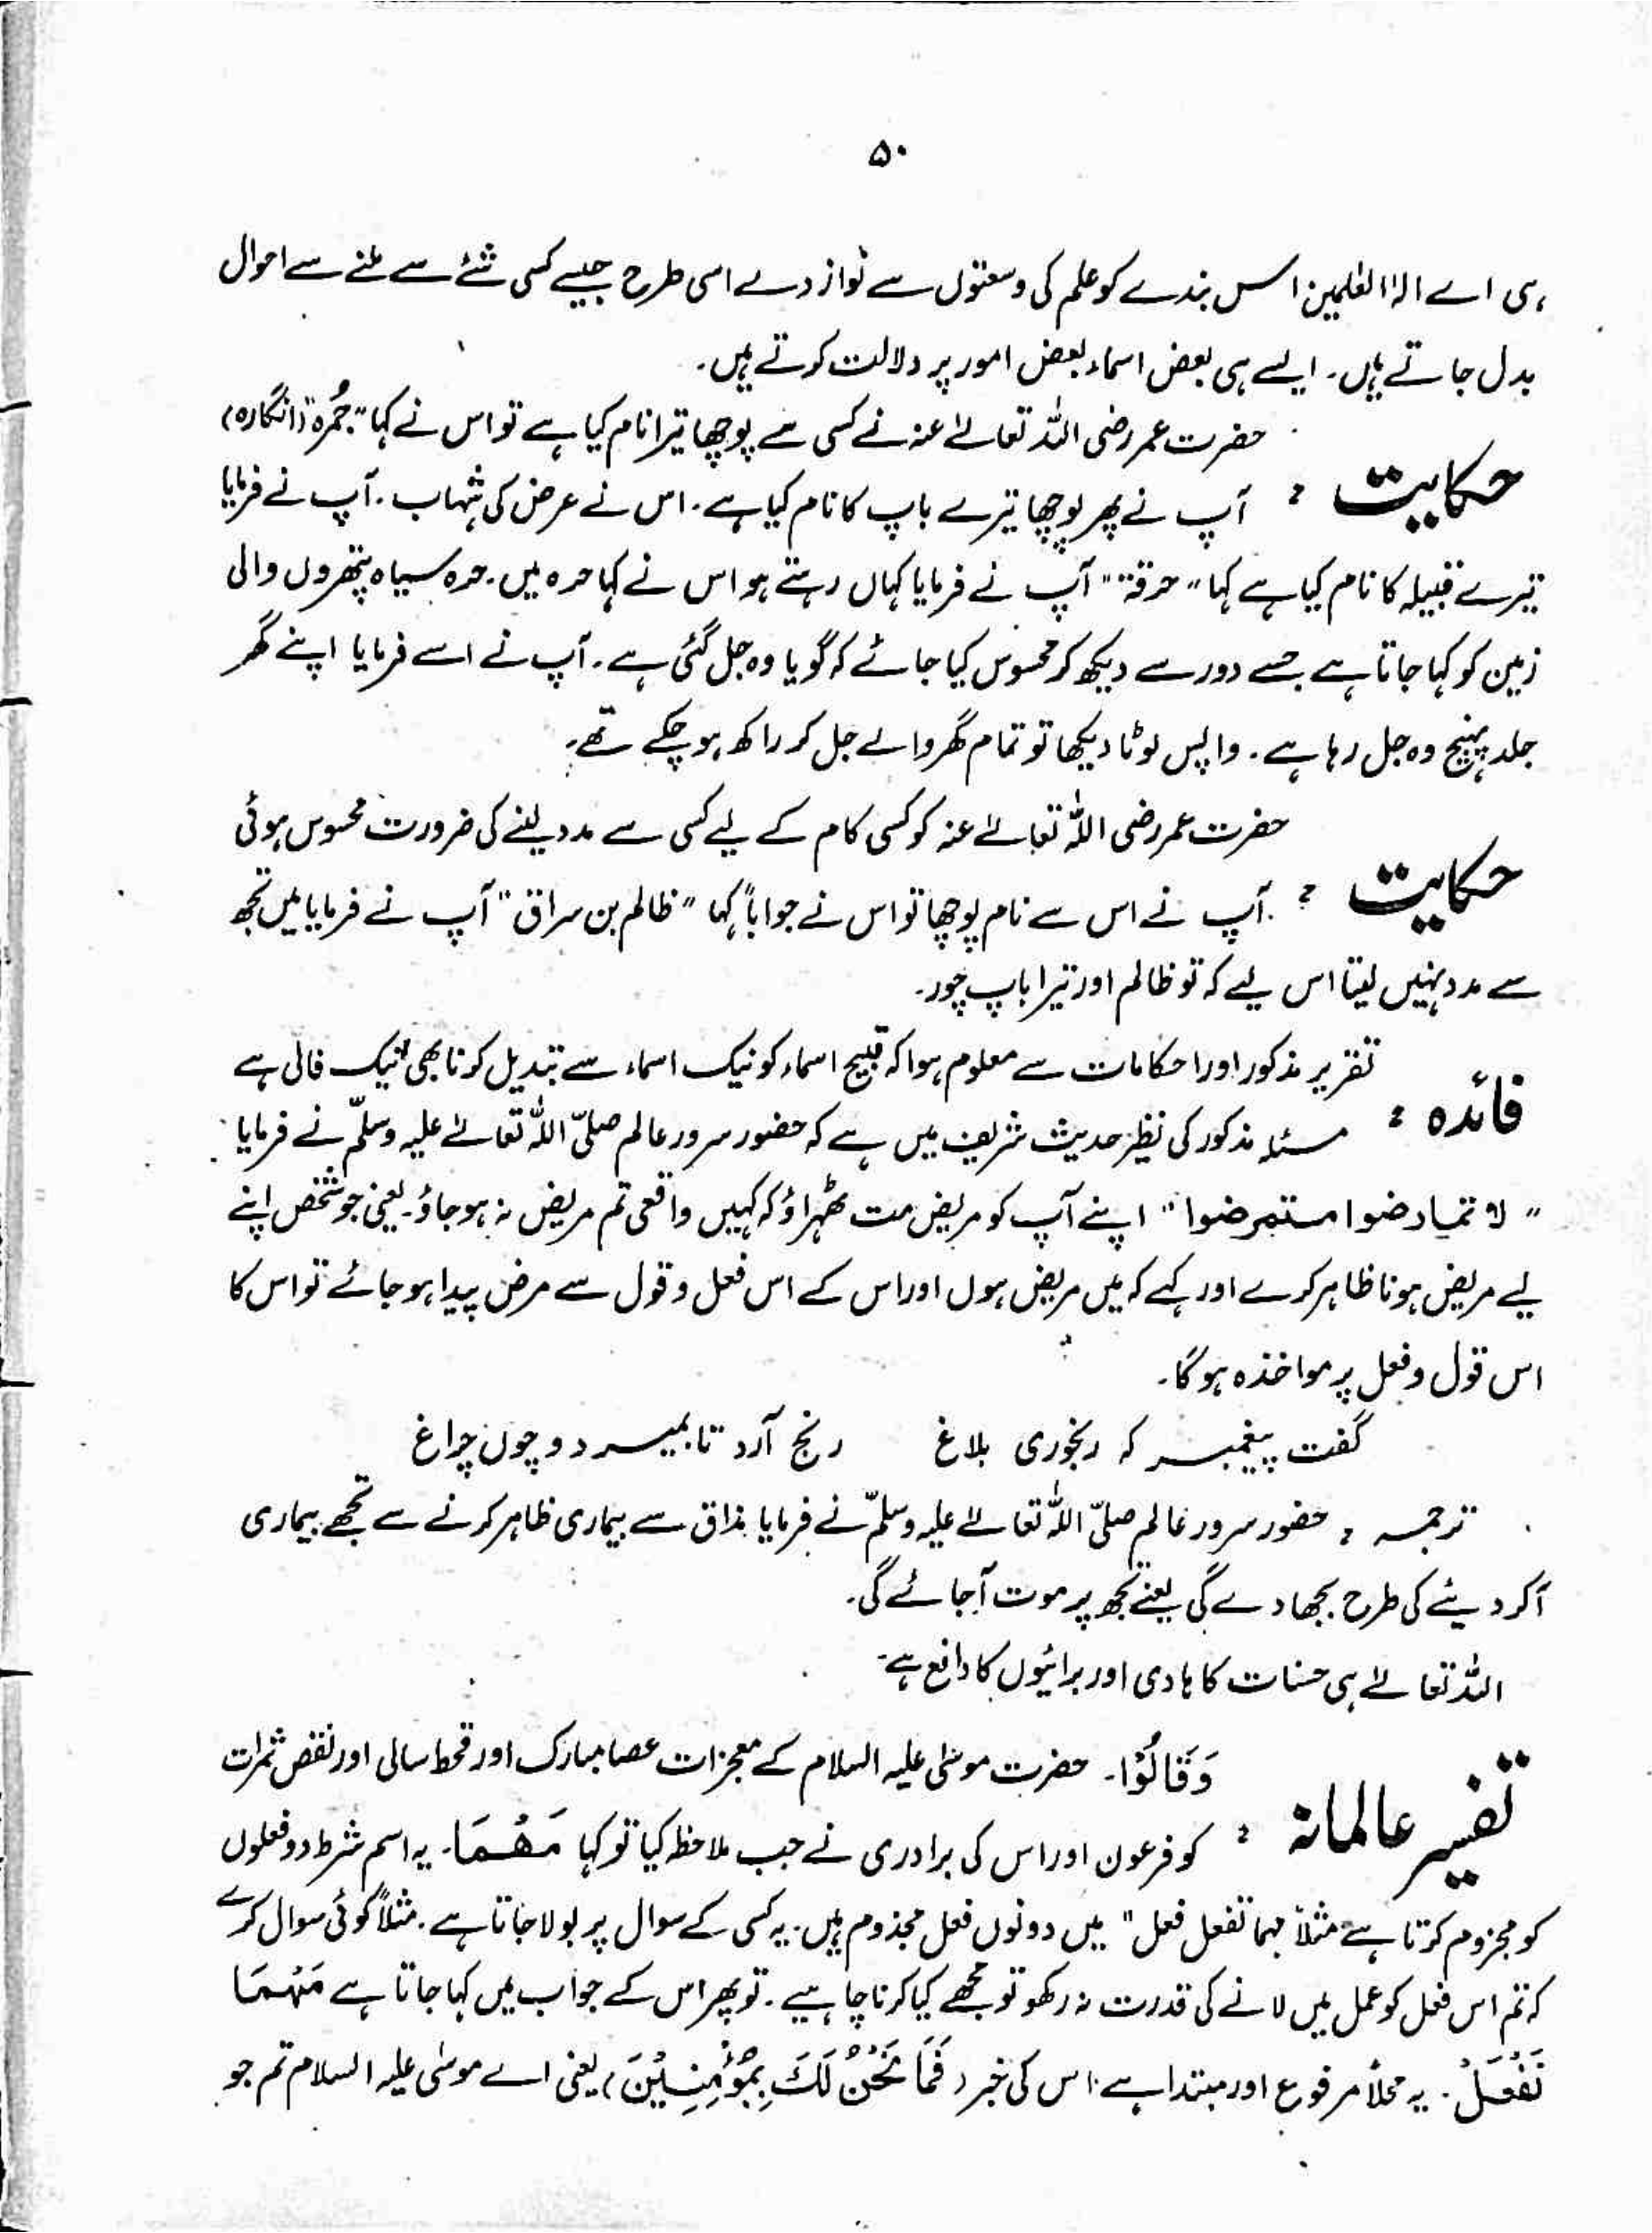 ۵۰
ہی اے الٰہ العٰلمین اس بندے کو علم کی وسعتوں سے نواز دے اسی طرح جیسے کسی شئے سے ملنے سے احوال
بدل جاتے ہیں۔ ایسے ہی بعض اسماء بعض امور پر دلالت کرتے ہیں۔
حضرت عمر رضی اللہ تعالےٰ عنہ نے کسی سے پوچھا تیرا نام کیا ہے تو اس نے کہا "جمُرہ" (انگارہ)
حکایت : آپ نے پھر پوچھا تیرے باپ کا نام کیا ہے۔ اس نے عرض کی شہاب۔ آپ نے فرمایا
تیرے قبیلہ کا نام کیا ہے کہا "حرقۃ" آپ نے فرمایا کہاں رہتے ہو اس نے کہا حرہ میں۔ حرہ سیاہ پتھروں والی
زمین کو کہا جاتا ہے جسے دور سے دیکھ کر محسوس کیا جائے کہ گویا وہ جل گئی ہے۔ آپ نے اسے فرمایا اپنے گھر
جلد پہنچ وہ جل رہا ہے۔ واپس لوٹا دیکھا تو تمام گھر والے جل کر راکھ ہو چکے تھے۔
حضرت عمر رضی اللہ تعالےٰ عنہ کو کسی کام کے لیے کسی سے مدد لینے کی ضرورت محسوس ہوئی
حکایت : آپ نے اس سے نام پوچھا تو اس نے جواباً کہا "ظالم بن سراق" آپ نے فرمایا میں تجھ
سے مدد نہیں لیتا اس لیے کہ تو ظالم اور تیرا باپ چور۔
تقریر مذکور اور احکامات سے معلوم ہوا کہ قبیح اسماء کو نیک اسماء سے تبدیل کرنا بھی نیک فالی ہے
فائدہ : مسئلہ مذکور کی نظیر حدیث شریف میں ہے کہ حضور سرور عالم صلّی اللہ تعالےٰ علیہ وسلّم نے فرمایا
"لا تمارضوا ستمرضوا" اپنے آپ کو مریض مت ٹھہراؤ کہ کہیں واقعی تم مریض نہ ہو جاؤ۔ یعنی جو شخص اپنے
لیے مریض ہونا ظاہر کرے اور کہے کہ میں مریض ہوں اور اس کے اس فعل و قول سے مرض پیدا ہو جائے تو اس کا
اس قول و فعل پر مواخذہ ہوگا۔
گفت پیغمبر کہ رنجوری بلاغ رنج آرد تا بمیرد و چوں چراغ
ترجمہ : حضور سرور عالم صلّی اللہ تعالےٰ علیہ وسلّم نے فرمایا مذاق سے بیماری ظاہر کرنے سے تجھے بیماری
آ کر دیئے کی طرح بجھا دے گی یعنے تجھ پر موت آ جائے گی۔
اللہ تعالےٰ ہی حسنات کا ہادی اور برائیوں کا دافع ہے۔
وَقَالُوْا۔ حضرت موسٰی علیہ السلام کے معجزات عصا مبارک اور قحط سالی اور نقص ثمرات
تفسیر عالمانہ : کو فرعون اور اس کی برادری نے جب ملاحظہ کیا تو کہا مَھْمَا۔ یہ اسم شرط دو فعلوں
کو مجزوم کرتا ہے مثلاً مہما تفعل فعل" میں دونوں فعل مجذوم ہیں۔ یہ کسی کے سوال پر بولا جاتا ہے۔ مثلاً کوئی سوال کرے
کہ تم اس فعل کو عمل میں لانے کی قدرت نہ رکھو تو مجھے کیا کرنا چاہیے۔ تو پھر اس کے جواب میں کہا جاتا ہے مَہْمَا
تَفْعَلْ۔ یہ محلاً مرفوع اور مبتدا ہے اس کی خبر (فَمَا نَحْنُ لَكَ بِمُؤْمِنِیْنَ) یعنی اے موسٰی علیہ السلام تم جو